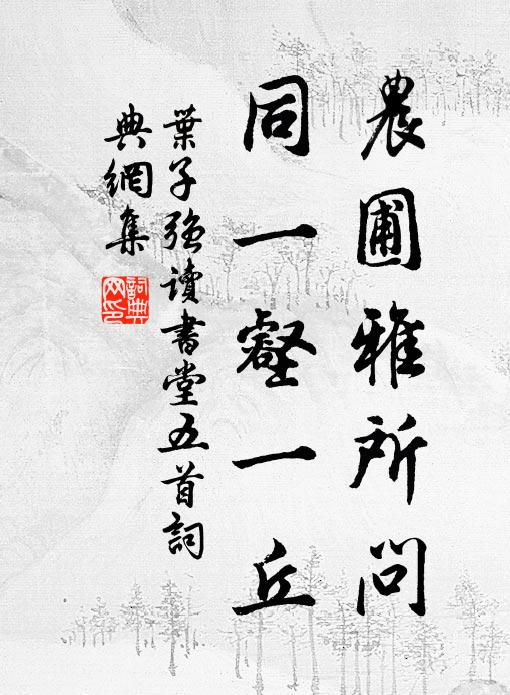 農圃雅所問
同一壑一丘
葉子強讀書堂五首詞
典網集
詞典
网印